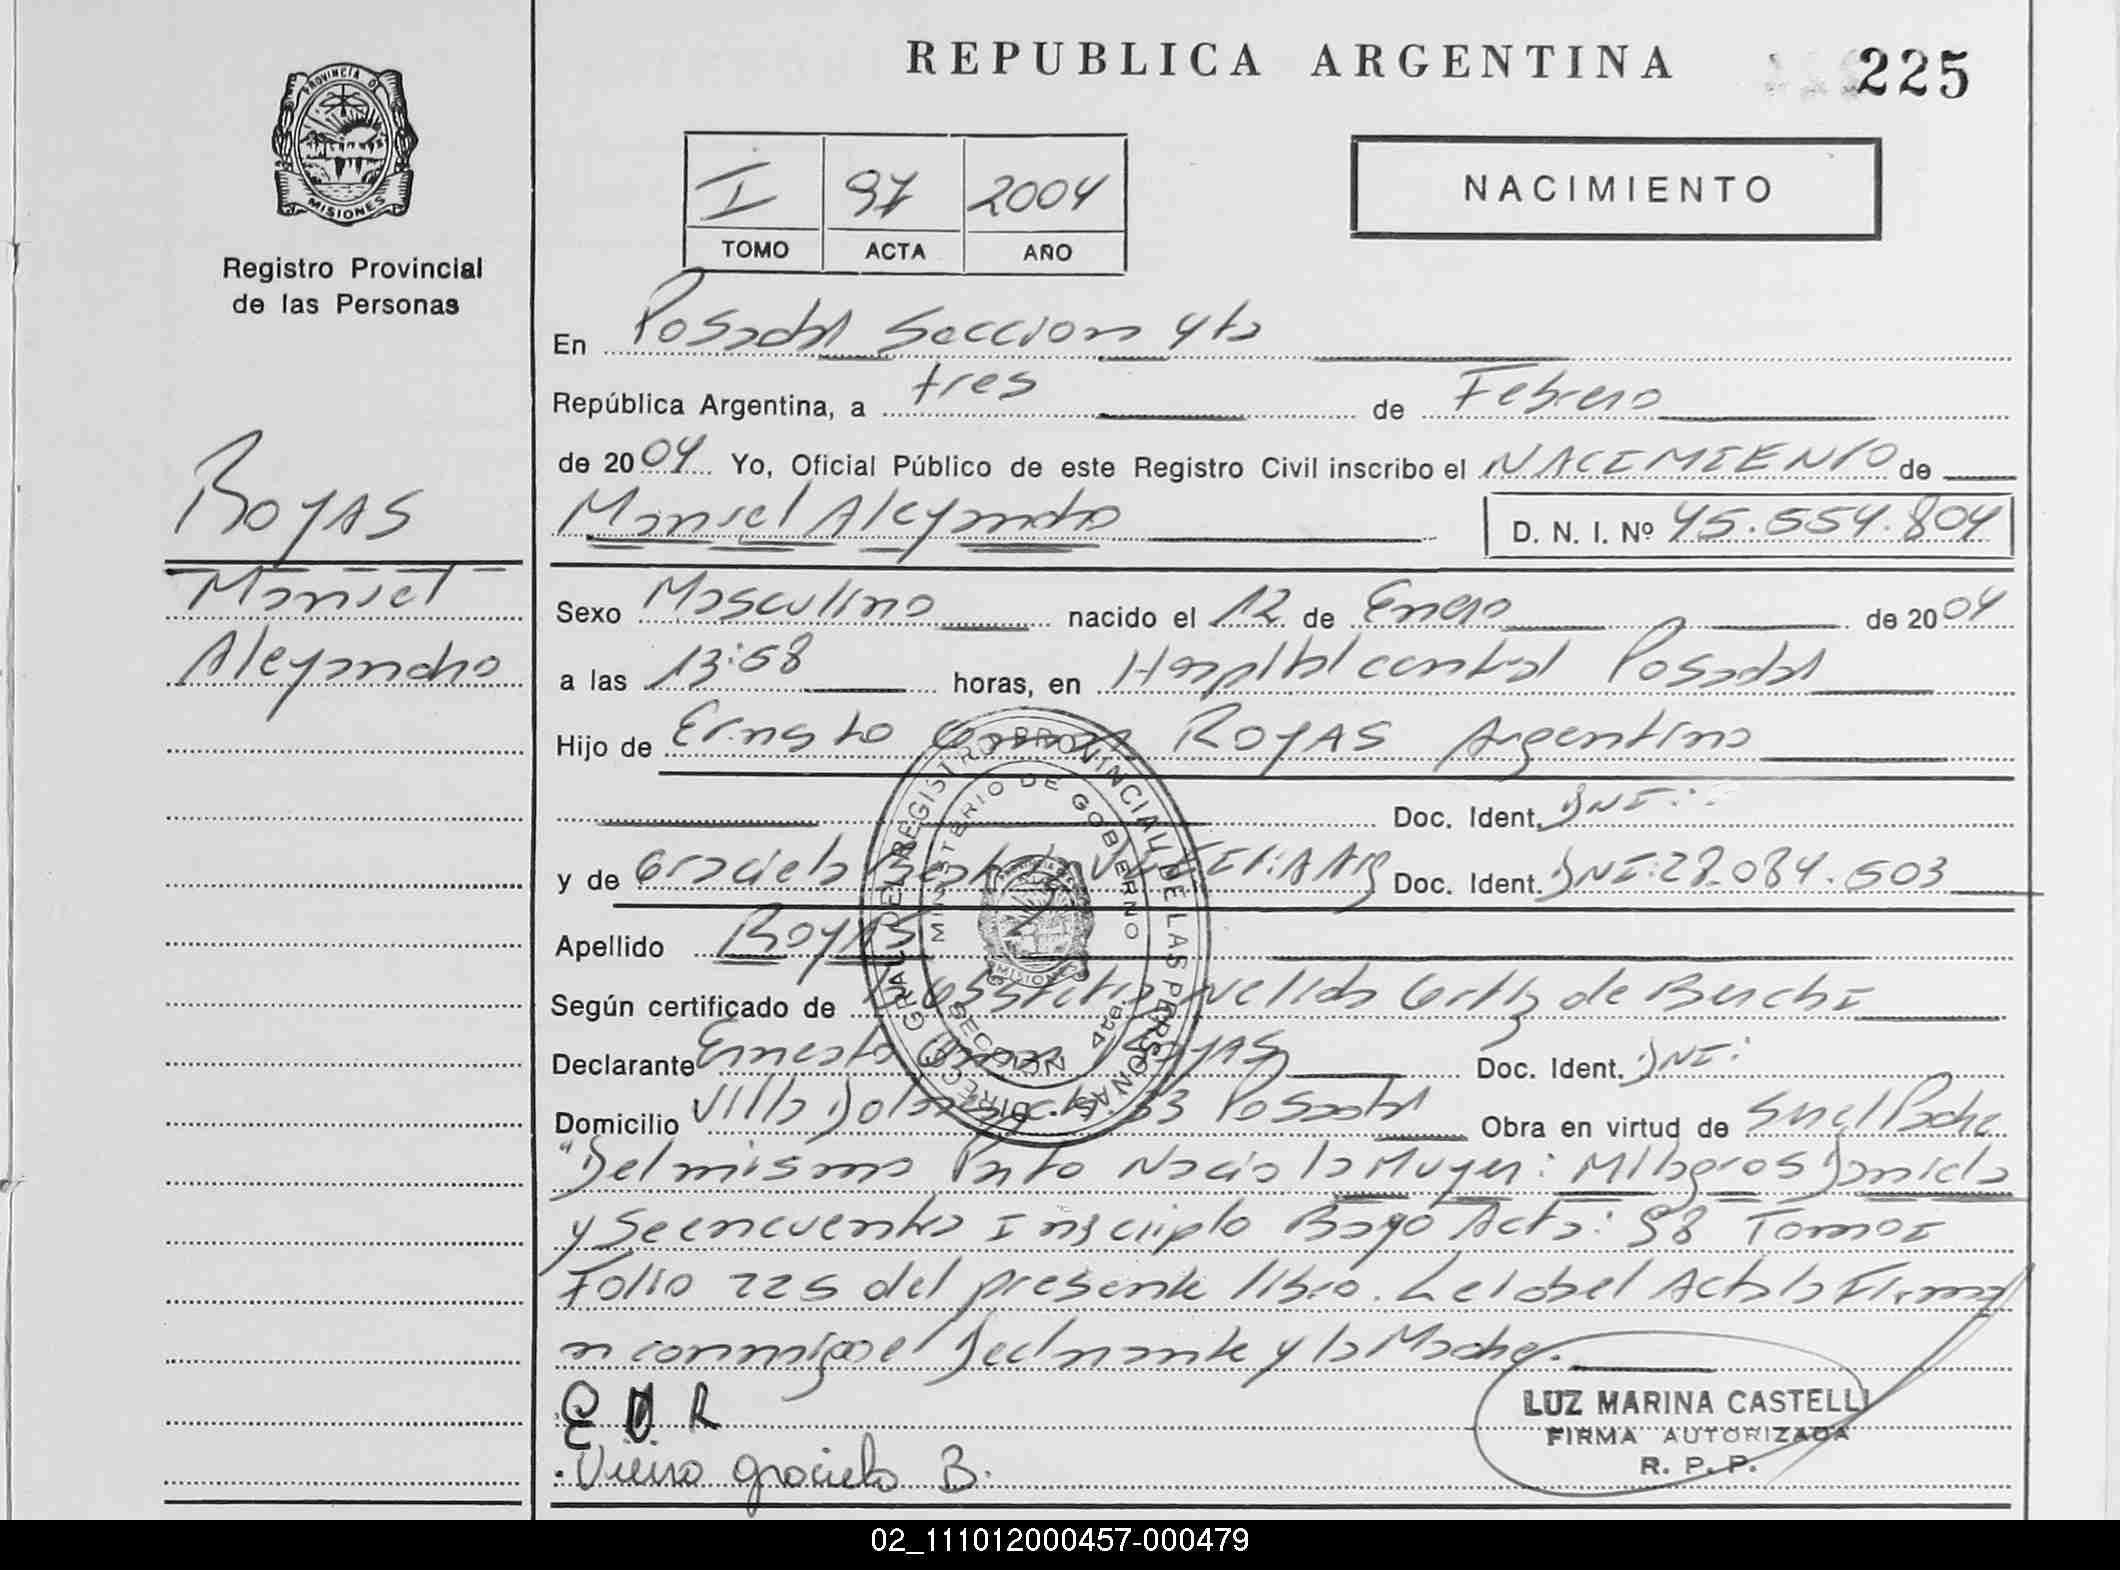 REPUBLICA ARGENTINA
225
PROVINCIA D
MISIONES
Registro Provincial
de las Personas
I 97 2004
TOMO ACTA AÑO
NACIMIENTO
En Posadas Seccion 4ta
República Argentina, a tres de Febrero
de 2004 Yo, Oficial Público de este Registro Civil inscribo el NACIMIENTO de
Manuel Alejandro D. N. I. Nº 45.554.804
ROJAS
Manuel
Alejandro
Sexo Masculino nacido el 12 de Enero de 2004
a las 13:58 horas, en Hospital central Posadas
Hijo de Ernesto ROJAS Argentino
Doc. Ident. DNI:
y de Graciela Doc. Ident. DNI: 28.084.503
Apellido ROJAS
Según certificado de Nelida Ortiz de
Declarante Ernesto ROJAS Doc. Ident. DNI:
Domicilio Villa 33 Posadas Obra en virtud de
"Del mismo Parto Nacio la Mujer: Milagros Daniela
y se encuentra Inscripto Bajo Acta: 98 Tomo I
Folio 225 del presente libro. Leida el Acta la Firma
n conmigo el Declarante y la Madre.
E O R
Vieira graciela B.
LUZ MARINA CASTELLI
FIRMA AUTORIZADA
R. P. P.
DIREC. GRAL. DEL REGISTRO PROVINCIAL DE LAS PERSONAS
MINISTERIO DE GOBIERNO
MISIONES
SECCION 4ta.
02_111012000457-000479